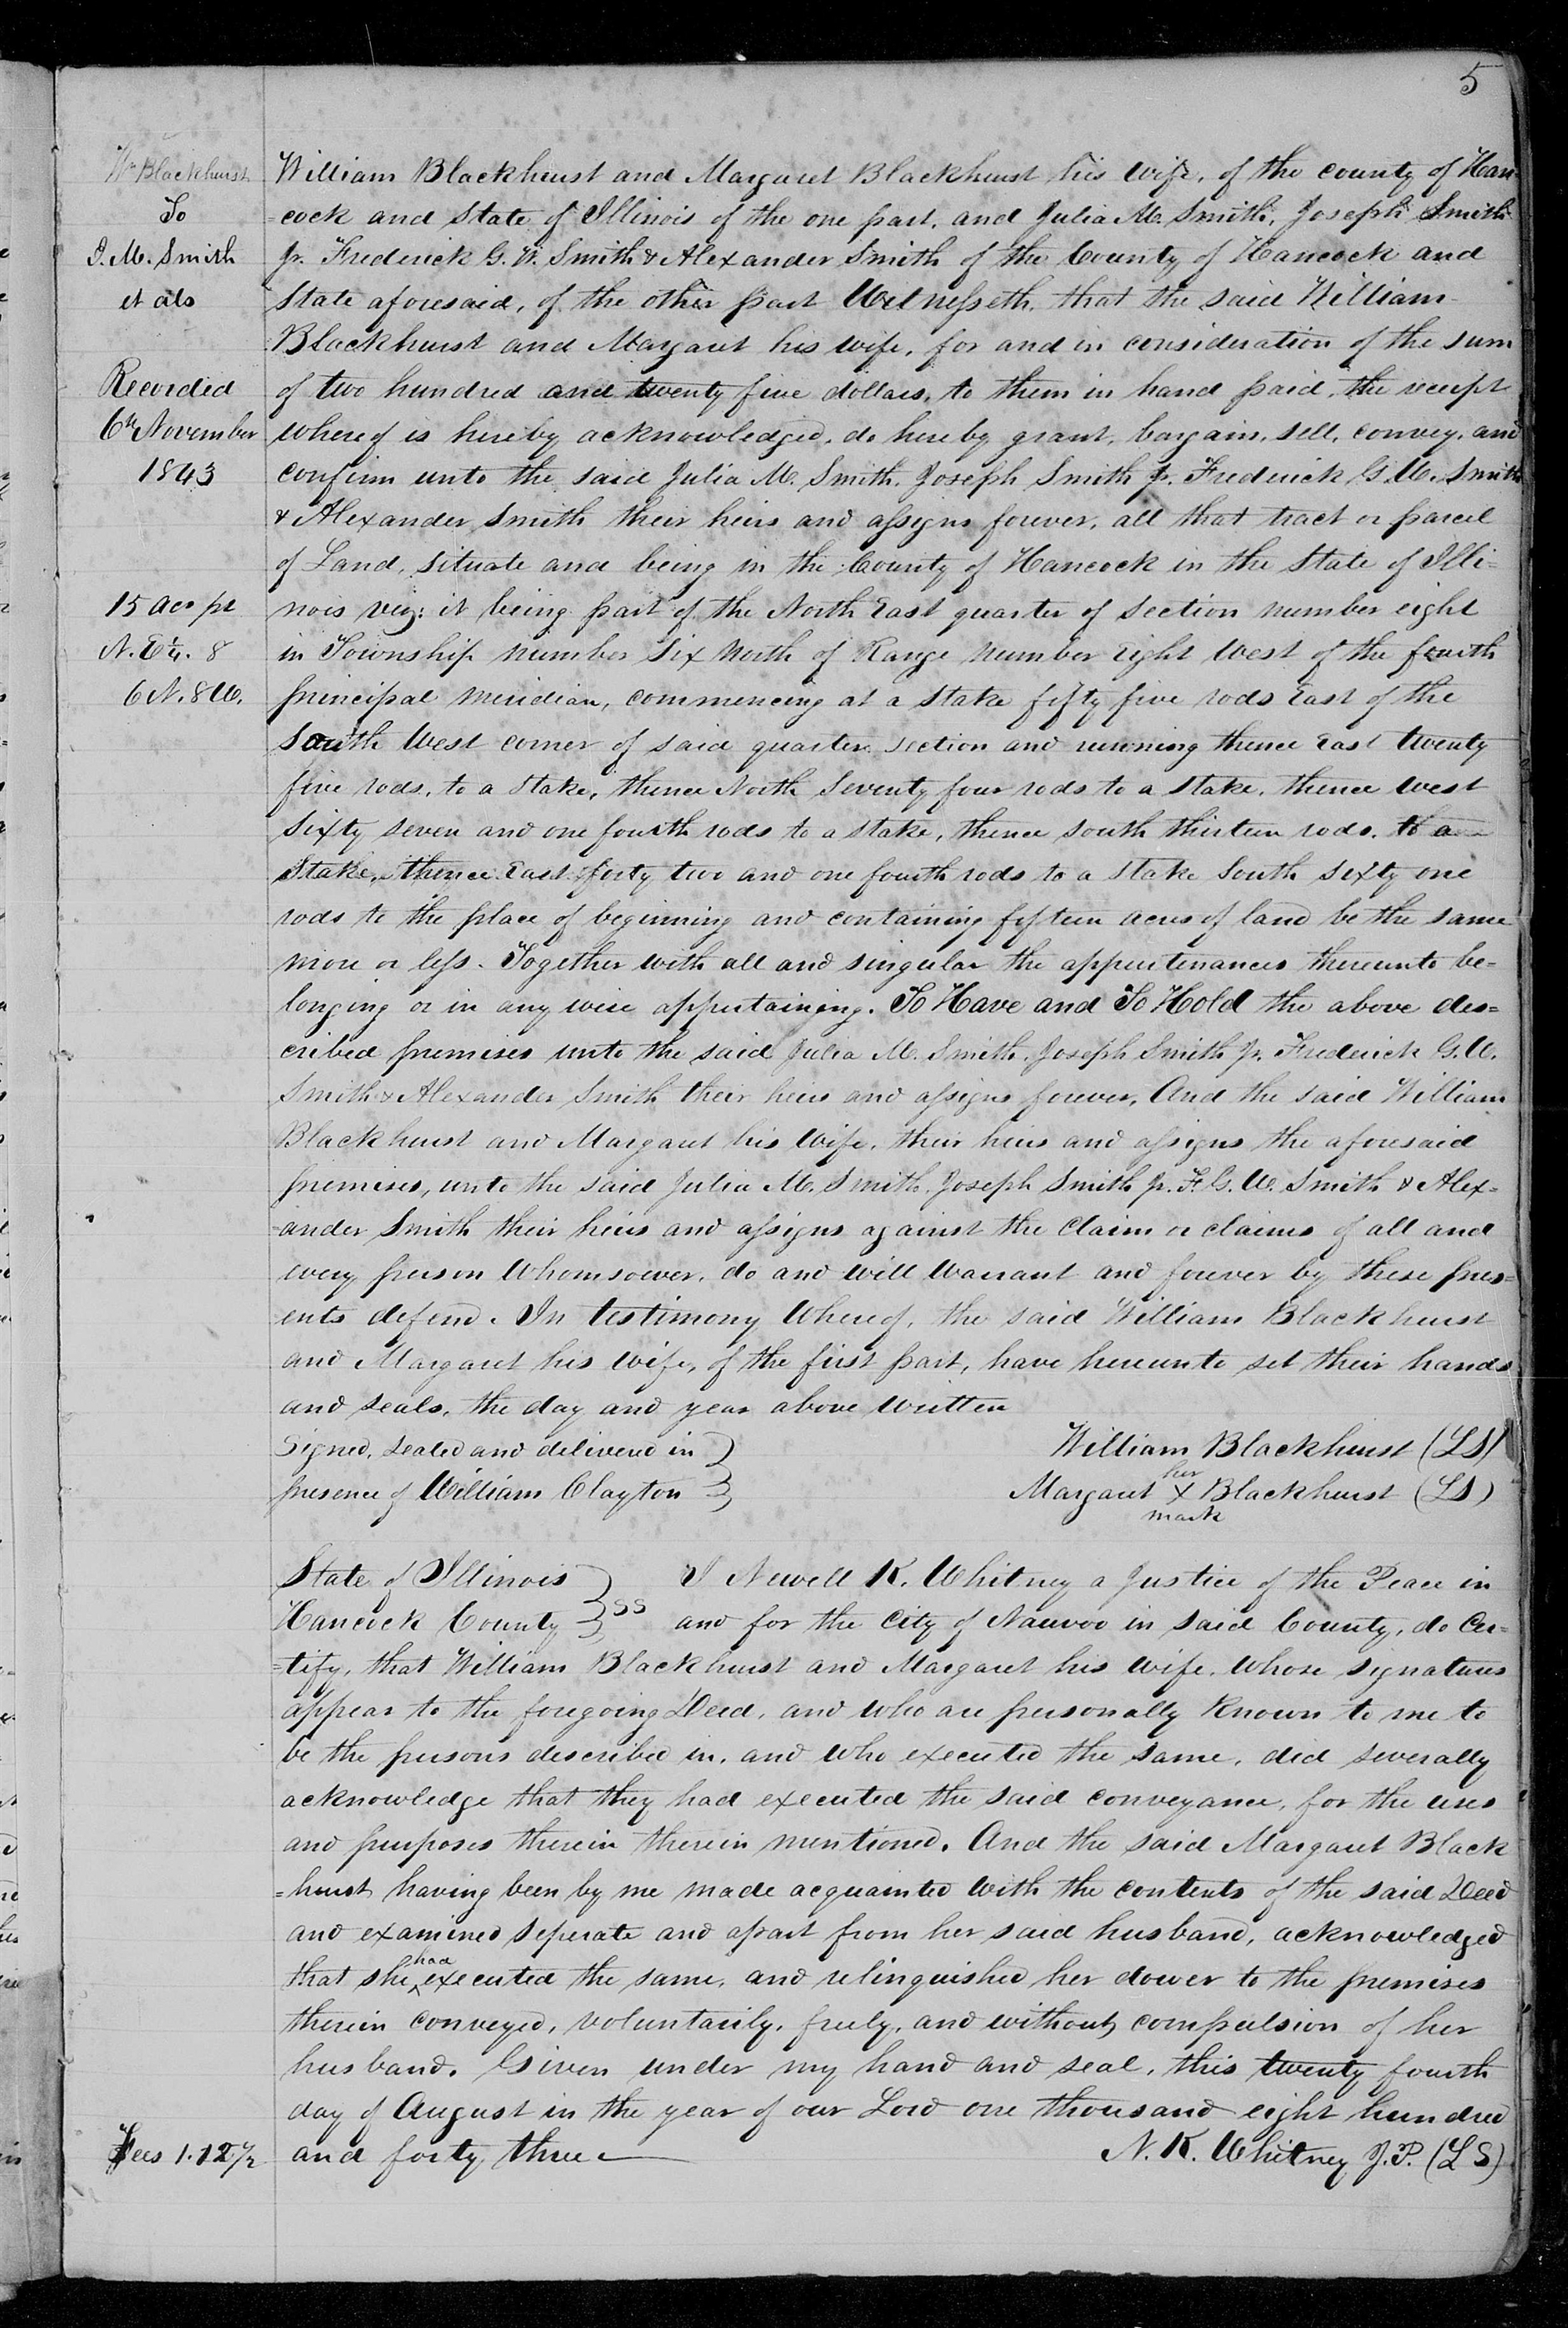 5
Wm Blackhurst
To
J. M. Smith
et als
Recorded
6th November
1843
15 acs pt
N. E 1/4. 8
6 N. 8 W.
William Blackhurst and Margaret Blackhurst his wife, of the county of Han-
=cock and State of Illinois of the one part, and Julia M. Smith, Joseph Smith
Jr. Frederick G. W. Smith & Alexander Smith of the County of Hancock and
State aforesaid, of the other part Witnesseth, that the said William
Blackhurst and Margaret his wife, for and in consideration of the sum
of two hundred and twenty five dollars, to them in hand paid, the receipt
whereof is hereby acknowledged, do hereby grant, bargain, sell, convey, and
confirm unto the said Julia M. Smith, Joseph Smith Jr. Frederick G. W. Smith
& Alexander Smith their heirs and assigns forever, all that tract or parcel
of Land, situate and being in the County of Hancock in the State of Illi=
nois viz: it being part of the North East quarter of Section number eight
in Township number Six North of Range Number Eight West of the fourth
principal meridian, commencing at a Stake fifty five rods East of the
South West corner of said quarter section and running thence East twenty
five rods, to a Stake, thence North Seventy four rods to a Stake, thence West
Sixty seven and one fourth rods to a stake, thence south thirteen rods, to a
Stake, thence East forty two and one fourth rods to a Stake South Sixty one
rods to the place of beginning and containing fifteen acres of land be the same
more or less. Together with all and singular the appurtenances thereunto be=
longing or in any wise appertaining. To Have and To Hold the above des=
cribed premises unto the said Julia M. Smith, Joseph Smith Jr. Frederick G. W.
Smith & Alexander Smith their heirs and assigns forever, And the said William
Blackhurst and Margaret his Wife, their heirs and assigns the aforesaid
premises, unto the said Julia M. Smith, Joseph Smith Jr. F. G. W. Smith & Alex=
=ander Smith their heirs and assigns against the Claim or claims of all and
every person Whomsoever, do and will Warrant and forever by these pres=
ents defend. In testimony Whereof, the said William Blackhurst
and Margaret his wife, of the first part, have hereunto set their hands
and seals, the day and year above written
Signed, Sealed and delivered in
presence of William Clayton
William Blackhurst (LS)
her
Margaret X Blackhurst (LS)
mark
State of Illinois
Hancock County } SS
I Newell K. Whitney a Justice of the Peace in
and for the City of Nauvoo in said County, do Cer=
=tify, that William Blackhurst and Margaret his wife, whose signatures
appear to the foregoing Deed, and who are personally Known to me to
be the persons described in, and who executed the same, did severally
acknowledge that they had executed the said conveyance, for the uses
and purposes therein therein mentioned. And the said Margaret Black
=hurst having been by me made acquainted with the contents of the said Deed
and examined seperate and apart from her said husband, acknowledged
that she ^had executed the same, and relinquished her dower to the premises
therein conveyed, voluntarily, freely, and without compulsion of her
husband. Given under my hand and seal, this twenty fourth
day of August in the year of our Lord one thousand eight hundred
and forty three
N. K. Whitney J. P. (L S)
Fees 1.12 1/2